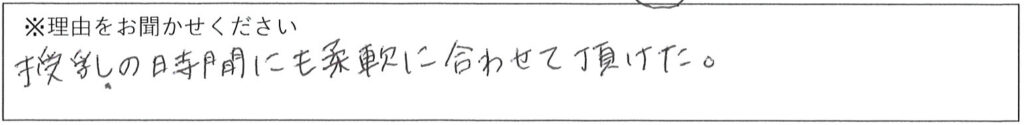 ※理由をお聞かせください
授乳の時間にも柔軟に合わせて頂けた。